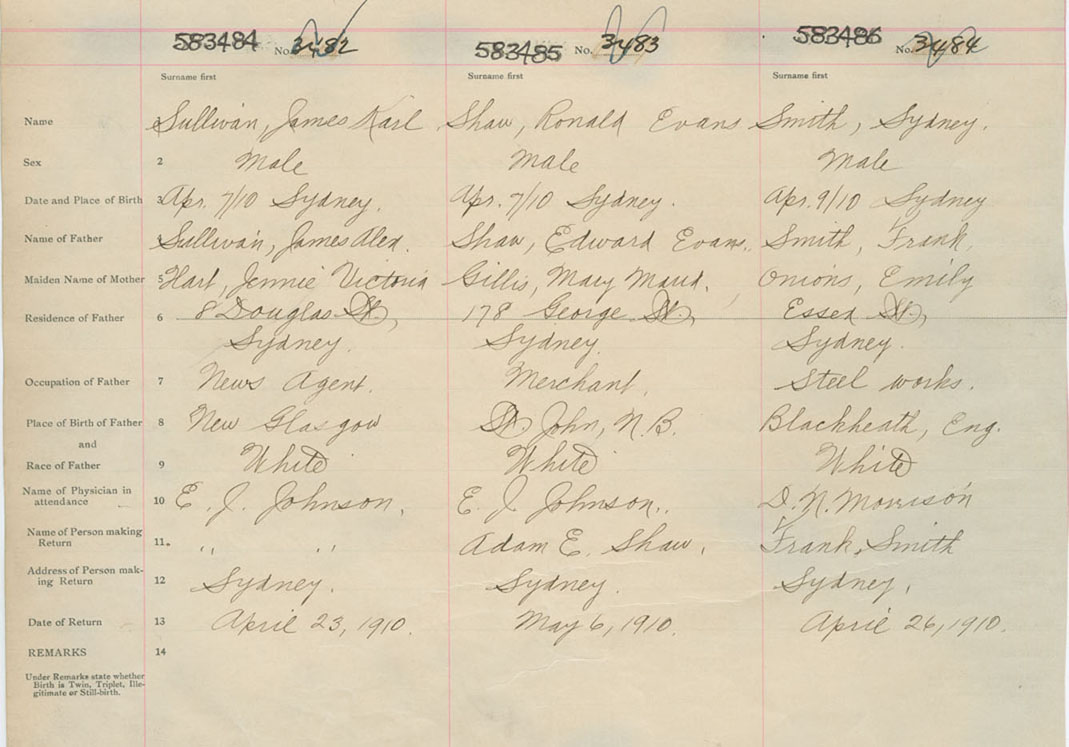 583484 No. 3482 583485 No. 3483 583486 No. 3484
Surname first Surname first Surname first
Name Sullivan, James Karl Shaw, Ronald Evans Smith, Sydney.
Sex 2 Male Male Male
Date and Place of Birth 3 Apr. 7/10 Sydney. Apr. 7/10 Sydney. Apr. 9/10 Sydney
Name of Father 4 Sullivan, James Alex. Shaw, Edward Evans. Smith, Frank,
Maiden Name of Mother 5 Hart, Jennie Victoria Gillis, Mary Maud, Onions, Emily
Residence of Father 6 8 Douglas St, 178 George St, Essex St,
Sydney. Sydney. Sydney.
Occupation of Father 7 News Agent. Merchant. Steel works.
Place of Birth of Father 8 New Glasgow St John, N.B. Blackheath, Eng.
and
Race of Father 9 White White White
Name of Physician in attendance 10 E. J. Johnson, E. J. Johnson. D. N. Morrison
Name of Person making Return 11. " " Adam E. Shaw, Frank, Smith
Address of Person mak-ing Return 12 Sydney. Sydney. Sydney,
Date of Return 13 April 23, 1910. May 6, 1910. April 26, 1910.
REMARKS 14
Under Remarks state whether
Birth is Twin, Triplet, Ille-
gitimate or Still-birth.